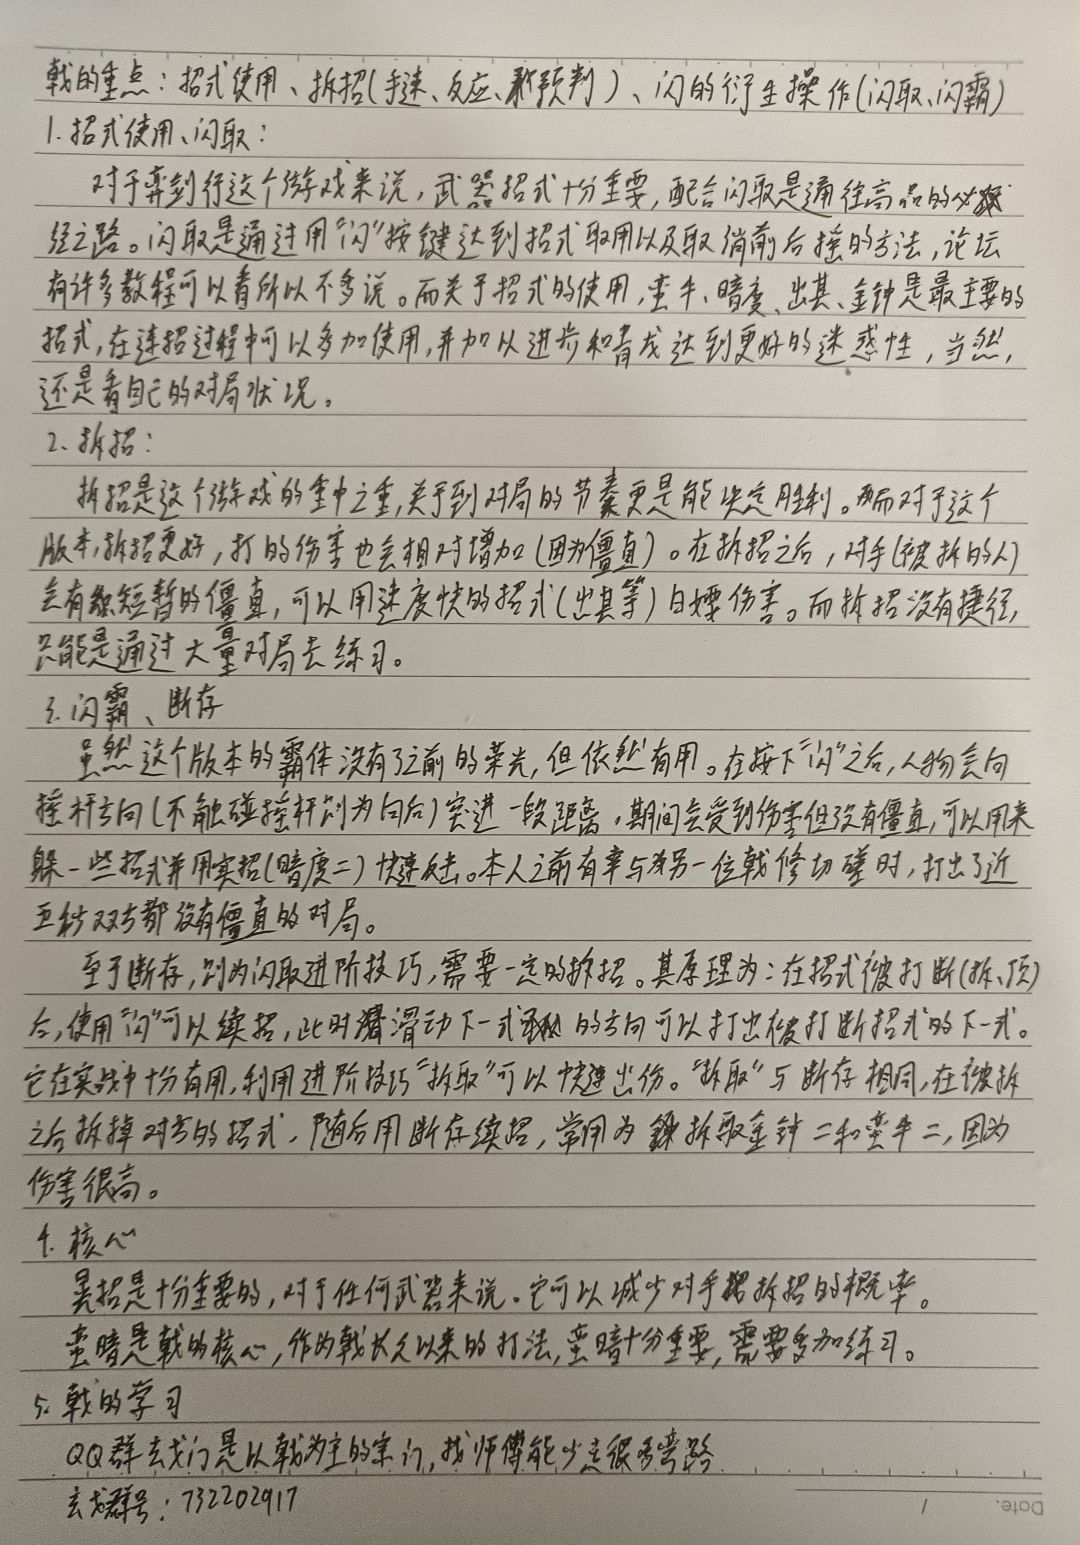 戟的重点：招式使用、拆招(手速、反应、预判)、闪的衍生操作(闪取、闪霸)
1.招式使用、闪取：
对于弈剑行这个游戏来说，武器招式十分重要，配合闪取是通往高品的必
经之路。闪取是通过用“闪”按键达到招式取用以及取消前后摇的方法，论坛
有许多教程可以看所以不多说。而关于招式的使用，蛮牛、暗度、出其、金钟是最主要的
招式，在连招过程中可以多加使用，并加以进步和育成达到更好的迷惑性，当然，
还是看自己的对局状况。
2.拆招：
拆招是这个游戏的重中之重，关乎到对局的节奏更是能决定胜利。而对于这个
版本，拆招更好，打的伤害也会相对增加(因为僵直)。在拆招之后，对手(被拆的人)
会有短暂的僵直，可以用速度快的招式(出其等)白嫖伤害。而拆招没有捷径，
只能是通过大量对局去练习。
3.闪霸、断存
虽然这个版本的霸体没有了之前的荣光，但依然有用。在按下“闪”之后，人物会向
摇杆方向(不触碰摇杆则为向后)突进一段距离，期间会受到伤害但没有僵直，可以用来
躲一些招式并用实招(暗度二)快速反击。本人之前有幸与另一位戟修切磋时，打出了近
五秒双方都没有僵直的对局。
至于断存，则为闪取进阶技巧，需要一定的拆招。其原理为：在招式被打断(拆、顶)
后，使用“闪”可以续招，此时滑动下一式的方向可以打出被打断招式的下一式。
它在实战中十分有用，利用进阶技巧“拆取”可以快速出伤。“拆取”与断存相同，在被拆
之后拆掉对方的招式，随后用断存续招，常用为拆取金钟二和蛮牛二，因为
伤害很高。
4.核心
晃招是十分重要的，对于任何武器来说。它可以减少对手拆招的概率。
蛮暗是戟的核心，作为戟长久以来的打法，蛮暗十分重要，需要多加练习。
5.戟的学习
QQ群玄戈门是以戟为主的宗门，找师傅能少走很多弯路
玄戈群号：732202917
Date. /